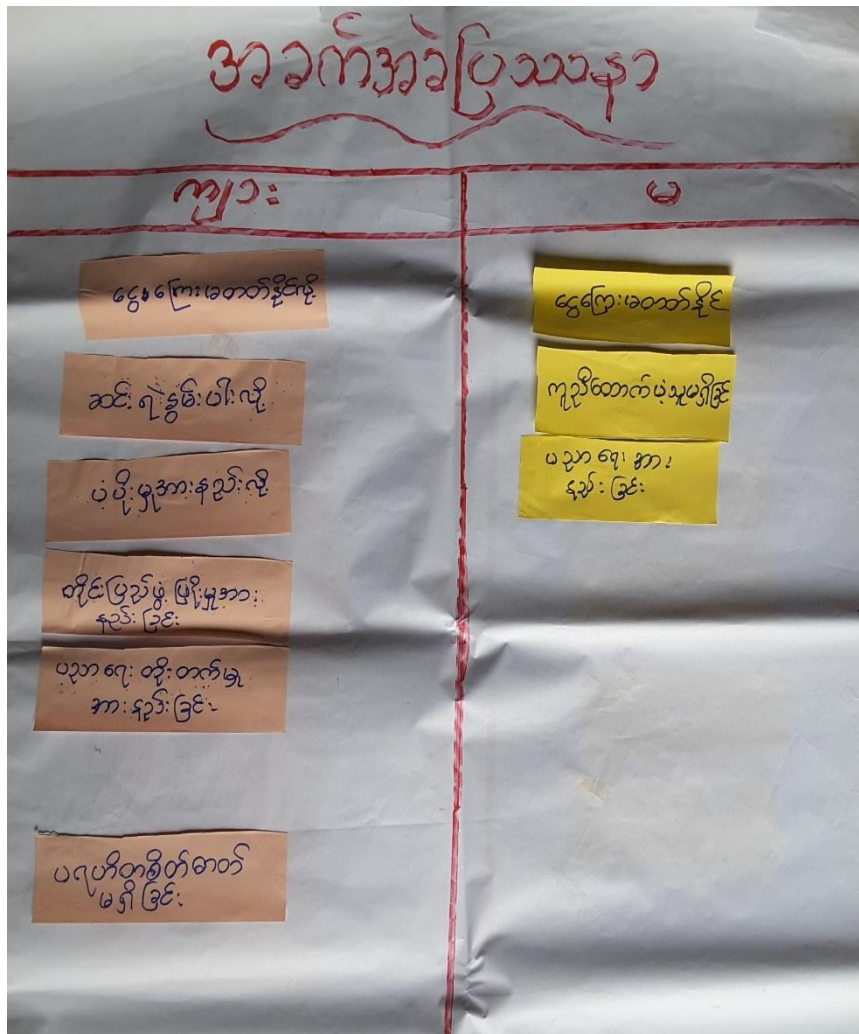 အခက်အခဲပြဿနာ
ကျား
မ
ငွေကြေးမတတ်နိုင်လို့
ဆင်းရဲနွမ်းပါးလို့
ပံ့ပိုးမှုအားနည်းလို့
တိုင်းပြည်ဖွံ့ဖြိုးမှုအား
နည်းခြင်း
ပညာရေး တိုးတက်မှု
အားနည်းခြင်း
ပရဟိတစိတ်ဓာတ်
မရှိခြင်း
ငွေကြေးမတတ်နိုင်
ကူညီထောက်ပံ့သူမရှိခြင်း
ပညာရေးအား
နည်းခြင်း